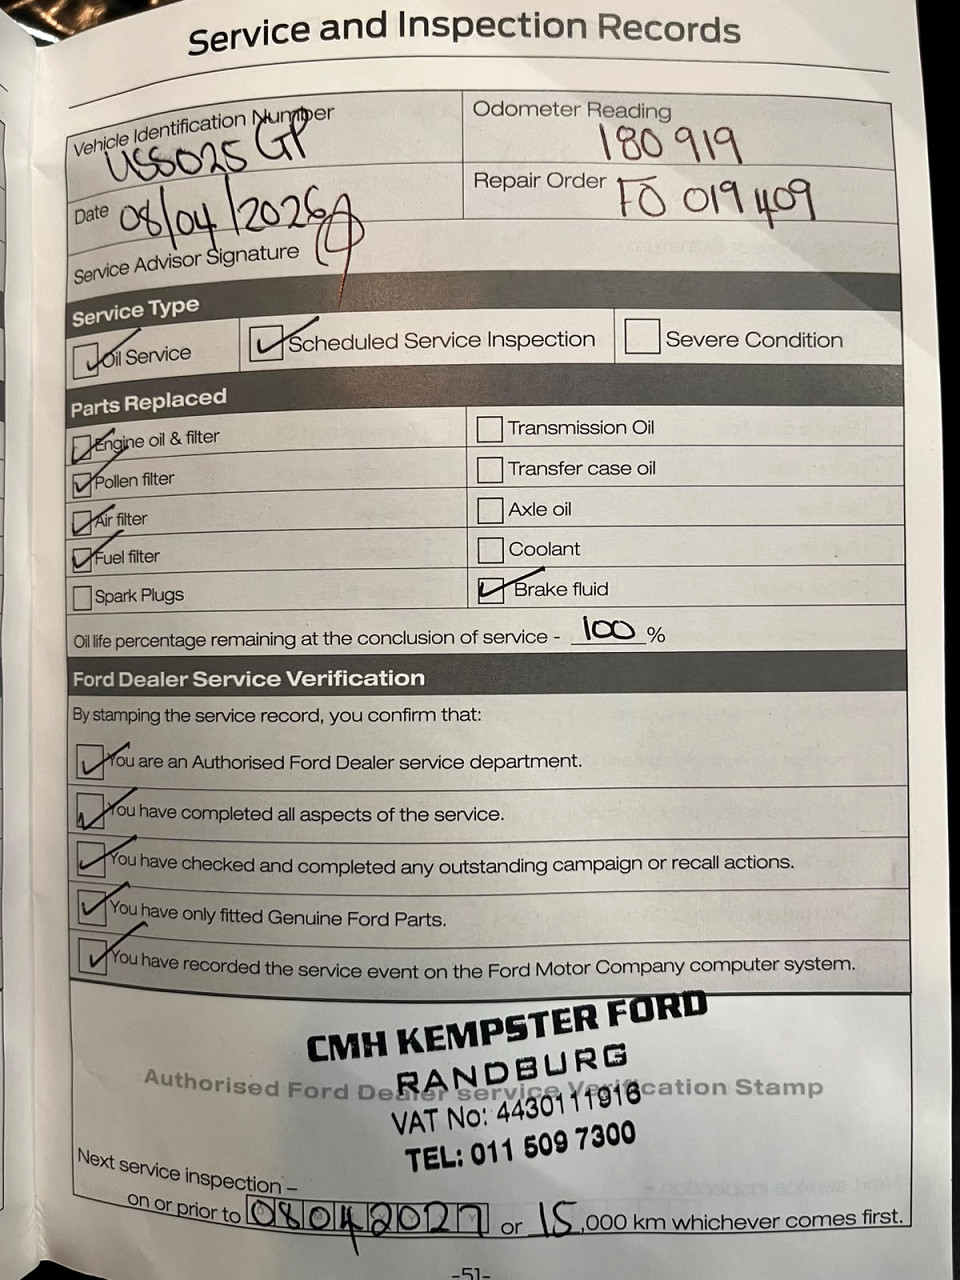 Service and Inspection Records
Vehicle Identification Number
USS025 GP
Odometer Reading
180 919
Date 08/04/2026
Repair Order FO 019409
Service Advisor Signature
Service Type
Oil Service
Scheduled Service Inspection
Severe Condition
Parts Replaced
Engine oil & filter
Transmission Oil
Pollen filter
Transfer case oil
Air filter
Axle oil
Fuel filter
Coolant
Spark Plugs
Brake fluid
Oil life percentage remaining at the conclusion of service - 100 %
Ford Dealer Service Verification
By stamping the service record, you confirm that:
You are an Authorised Ford Dealer service department.
You have completed all aspects of the service.
You have checked and completed any outstanding campaign or recall actions.
You have only fitted Genuine Ford Parts.
You have recorded the service event on the Ford Motor Company computer system.
CMH KEMPSTER FORD
RANDBURG
Authorised Ford Dealer service Verification Stamp
VAT No: 4430111916
TEL: 011 509 7300
Next service inspection –
on or prior to 08042027 or 15,000 km whichever comes first.
-51-